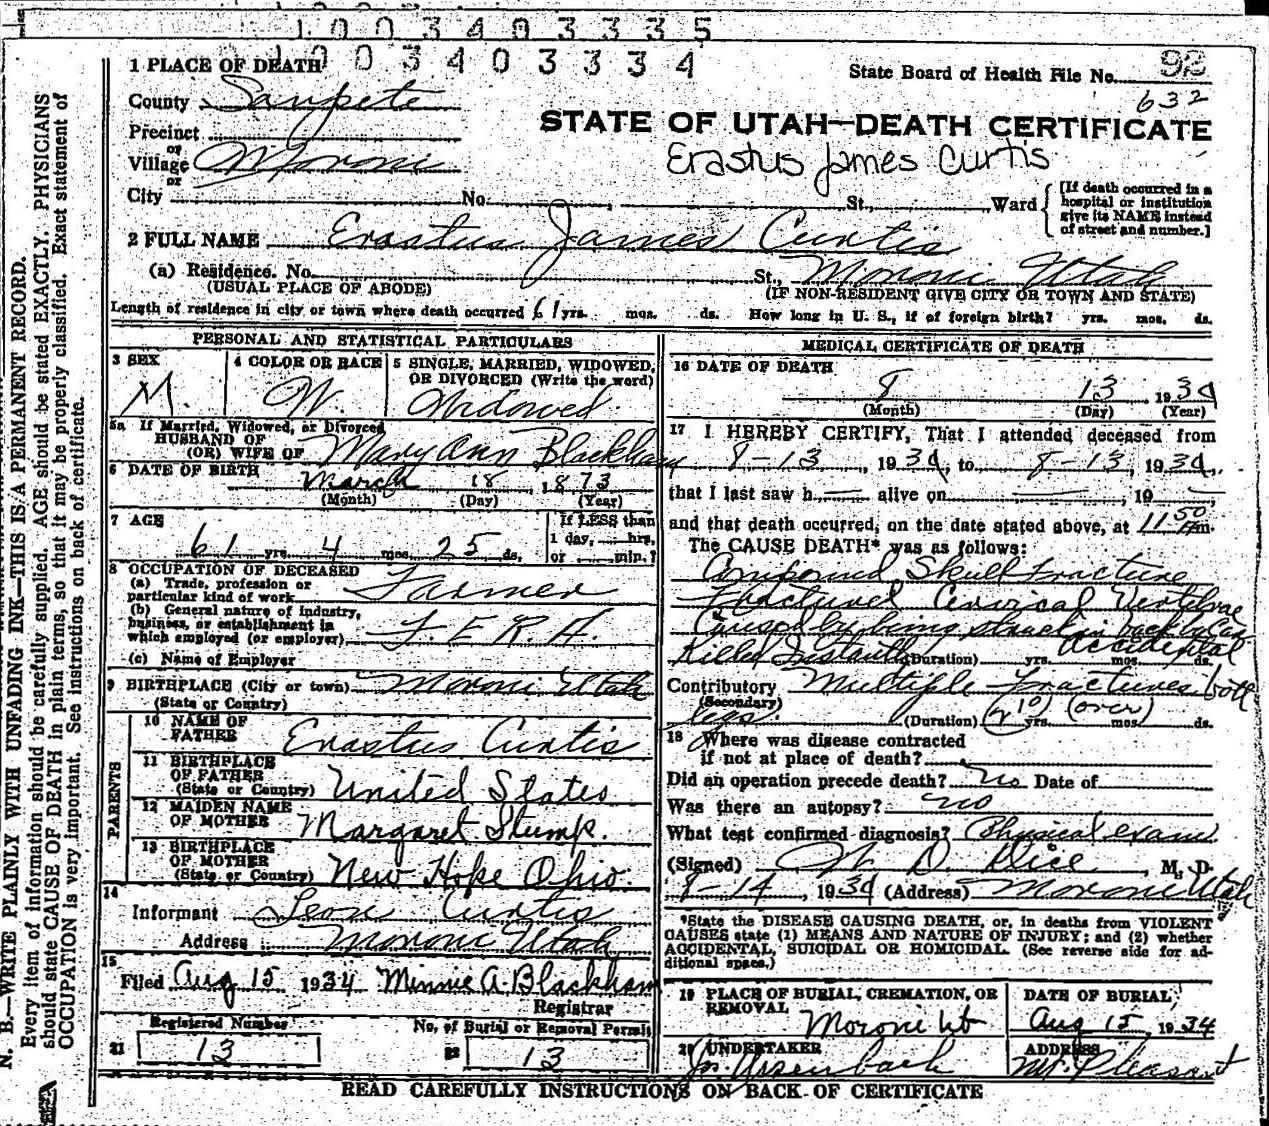 1003403335
1003403334
1 PLACE OF DEATH
State Board of Health File No. 92
County Sanpete
632
STATE OF UTAH—DEATH CERTIFICATE
Precinct
or
Village Moroni
Erastus James Curtis
or
City No. St., Ward
[If death occurred in a
hospital or institution
give its NAME instead
of street and number.]
2 FULL NAME Erastus James Curtis
(a) Residence. No. St., Moroni Utah
(USUAL PLACE OF ABODE) (IF NON-RESIDENT GIVE CITY OR TOWN AND STATE)
Length of residence in city or town where death occurred 61 yrs. mos. ds. How long in U. S., if of foreign birth? yrs. mos. ds.
PERSONAL AND STATISTICAL PARTICULARS
3 SEX
M.
4 COLOR OR RACE
W.
5 SINGLE, MARRIED, WIDOWED,
OR DIVORCED (Write the word)
Widowed
5a If Married, Widowed, or Divorced
HUSBAND OF
(OR) WIFE OF Mary Ann Blackham
6 DATE OF BIRTH
March 18 1873
(Month) (Day) (Year)
7 AGE
61 yrs. 4 mos. 25 ds.
If LESS than
1 day, hrs.
or min.?
8 OCCUPATION OF DECEASED
(a) Trade, profession or
particular kind of work Farmer
(b) General nature of industry,
business, or establishment in
which employed (or employer) F. E. R. A.
(c) Name of Employer
9 BIRTHPLACE (City or town) Moroni Utah
(State or Country)
PARENTS
10 NAME OF
FATHER Erastus Curtis
11 BIRTHPLACE
OF FATHER
(State or Country) United States
12 MAIDEN NAME
OF MOTHER Margaret Stump.
13 BIRTHPLACE
OF MOTHER
(State or Country) New Hope Ohio.
14
Informant Leon Curtis
Address Moroni Utah
15
Filed Aug 15 1934 Minnie A. Blackham
Registrar
Registered Number
21 13
No. of Burial or Removal Permit
22 13
MEDICAL CERTIFICATE OF DEATH
16 DATE OF DEATH
8 13 1934
(Month) (Day) (Year)
17 I HEREBY CERTIFY, That I attended deceased from
8-13, 1934, to 8-13, 1934,
that I last saw h alive on , 19
and that death occurred, on the date stated above, at 11 50 Pm.
The CAUSE DEATH* was as follows:
Compound Skull fracture
Fractured Cervical Vertebrae
Caused by being struck in back by Car
Killed Instantly (Duration) yrs. mos. ds. Accidental
Contributory Multiple fractures both
(Secondary)
legs. (Duration) 210 yrs. (over) mos. ds.
18 Where was disease contracted
if not at place of death?
Did an operation precede death? no Date of
Was there an autopsy? no
What test confirmed diagnosis? Physical exam
(Signed) D. Rice, M. D.
8-14, 1934 (Address) Moroni Utah
*State the DISEASE CAUSING DEATH, or, in deaths from VIOLENT
CAUSES state (1) MEANS AND NATURE OF INJURY; and (2) whether
ACCIDENTAL, SUICIDAL OR HOMICIDAL. (See reverse side for ad-
ditional space.)
19 PLACE OF BURIAL, CREMATION, OR
REMOVAL
Moroni Ut
DATE OF BURIAL
Aug 15, 1934
20 UNDERTAKER
Jos. Ursenbach
ADDRESS
Mt. Pleasant
READ CAREFULLY INSTRUCTIONS ON BACK OF CERTIFICATE
N. B.—WRITE PLAINLY WITH UNFADING INK—THIS IS A PERMANENT RECORD.
Every item of information should be carefully supplied. AGE should be stated EXACTLY. PHYSICIANS
should state CAUSE OF DEATH in plain terms, so that it may be properly classified. Exact statement of
OCCUPATION is very important. See instructions on back of certificate.